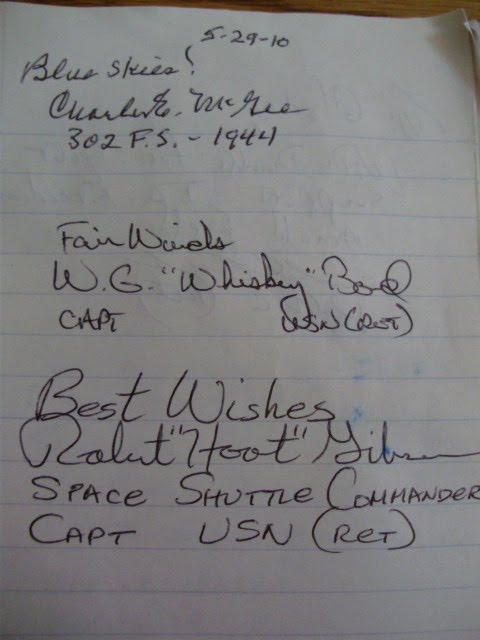 5-29-10
Blue Skies!
Charles E. McGee
302 F.S. - 1944
Fair Winds
W.G. "Whiskey" Bond
CAPT USN (RET)
Best Wishes
Robert "Hoot" Gibson
SPACE SHUTTLE COMMANDER
CAPT USN (RET)